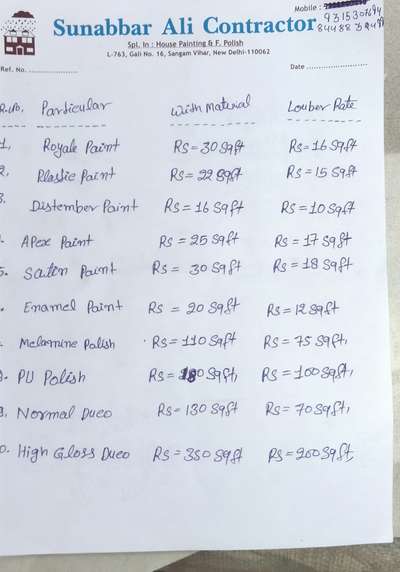 Mobile :
9315307694
Sunabbar Ali Contractor
Spl. In : House Painting & F. Polish
L-763, Gali No. 16, Sangam Vihar, New Delhi-110062
Ref. No. ................... Date ........................
Particular With Material Louber Rate
1, Royale Paint RS = 30 Sqft RS = 16 Sqft
2, Plastic Paint RS = 22 Sqft RS = 15 Sqft
3. Distember Paint RS = 16 Sqft RS = 10 Sqft
Apex Paint RS = 25 Sqft RS = 17 Sqft
5. Satin Paint RS = 30 Sqft RS = 18 Sqft
Enamel Paint RS = 20 Sqft RS = 12 Sqft
Melamine Polish RS = 110 Sqft RS = 75 Sqft,
PU Polish RS = 180 Sqft, RS = 100 Sqft,
9. Normal Duco RS = 130 Sqft RS = 70 Sqft,
0. High Gloss Duco RS = 350 Sqft RS = 200 Sqft,